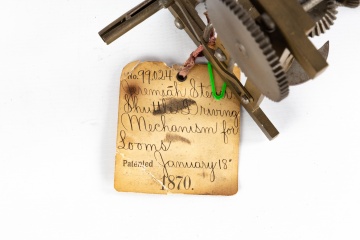 No. 99,024
Jeremiah
Shuttle Driving
Mechanism for
Looms
Patented January 18"
1870.